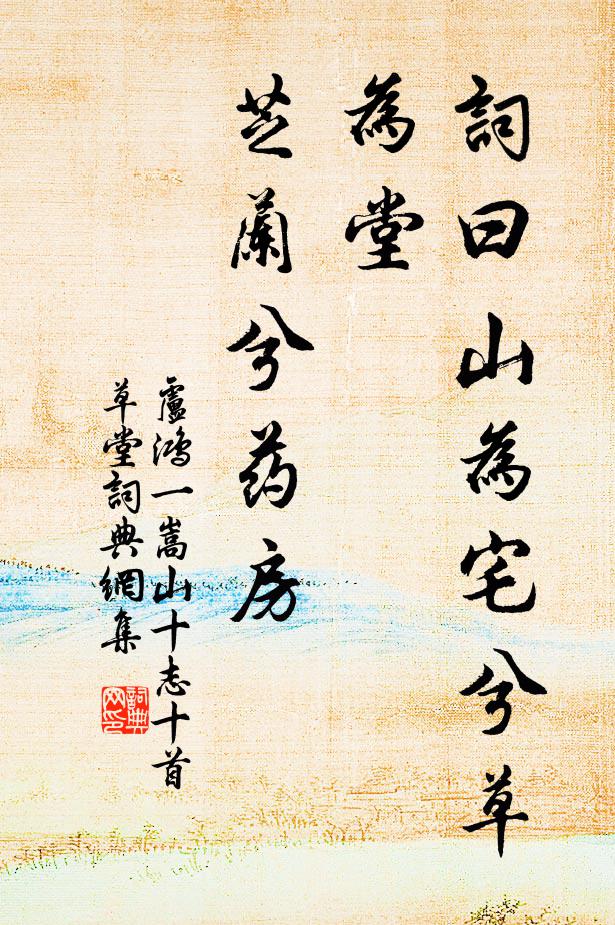 詞曰山為宅兮草
為堂
芝蘭兮药房
盧鴻一嵩山十志十首
草堂詞典網集
詞典
网印